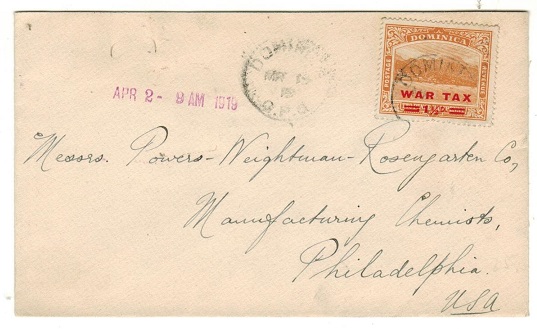 DOMINICA
POSTAGE
REVENUE
WAR TAX
1½D.
DOMINI
DOMINI
MR
19
G.P.O.
APR 2 - 9 AM 1919
Messrs. Powers-Weightman-Rosengarten Co,
Manufacturing Chemists,
Philadelphia.
USA